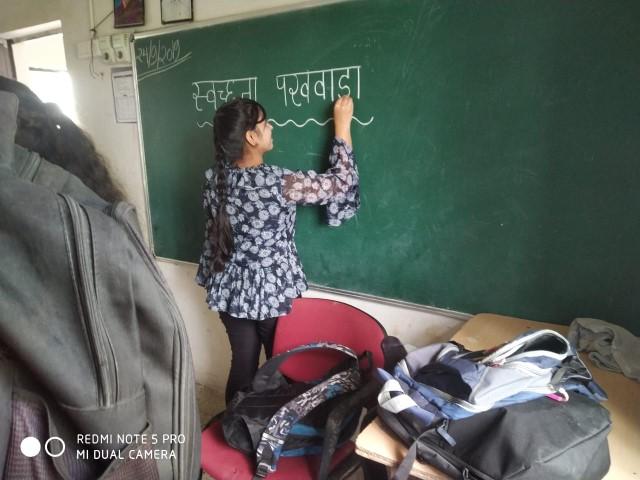 24/9/2019
स्वच्छता पखवाडा
REDMI NOTE 5 PRO
MI DUAL CAMERA